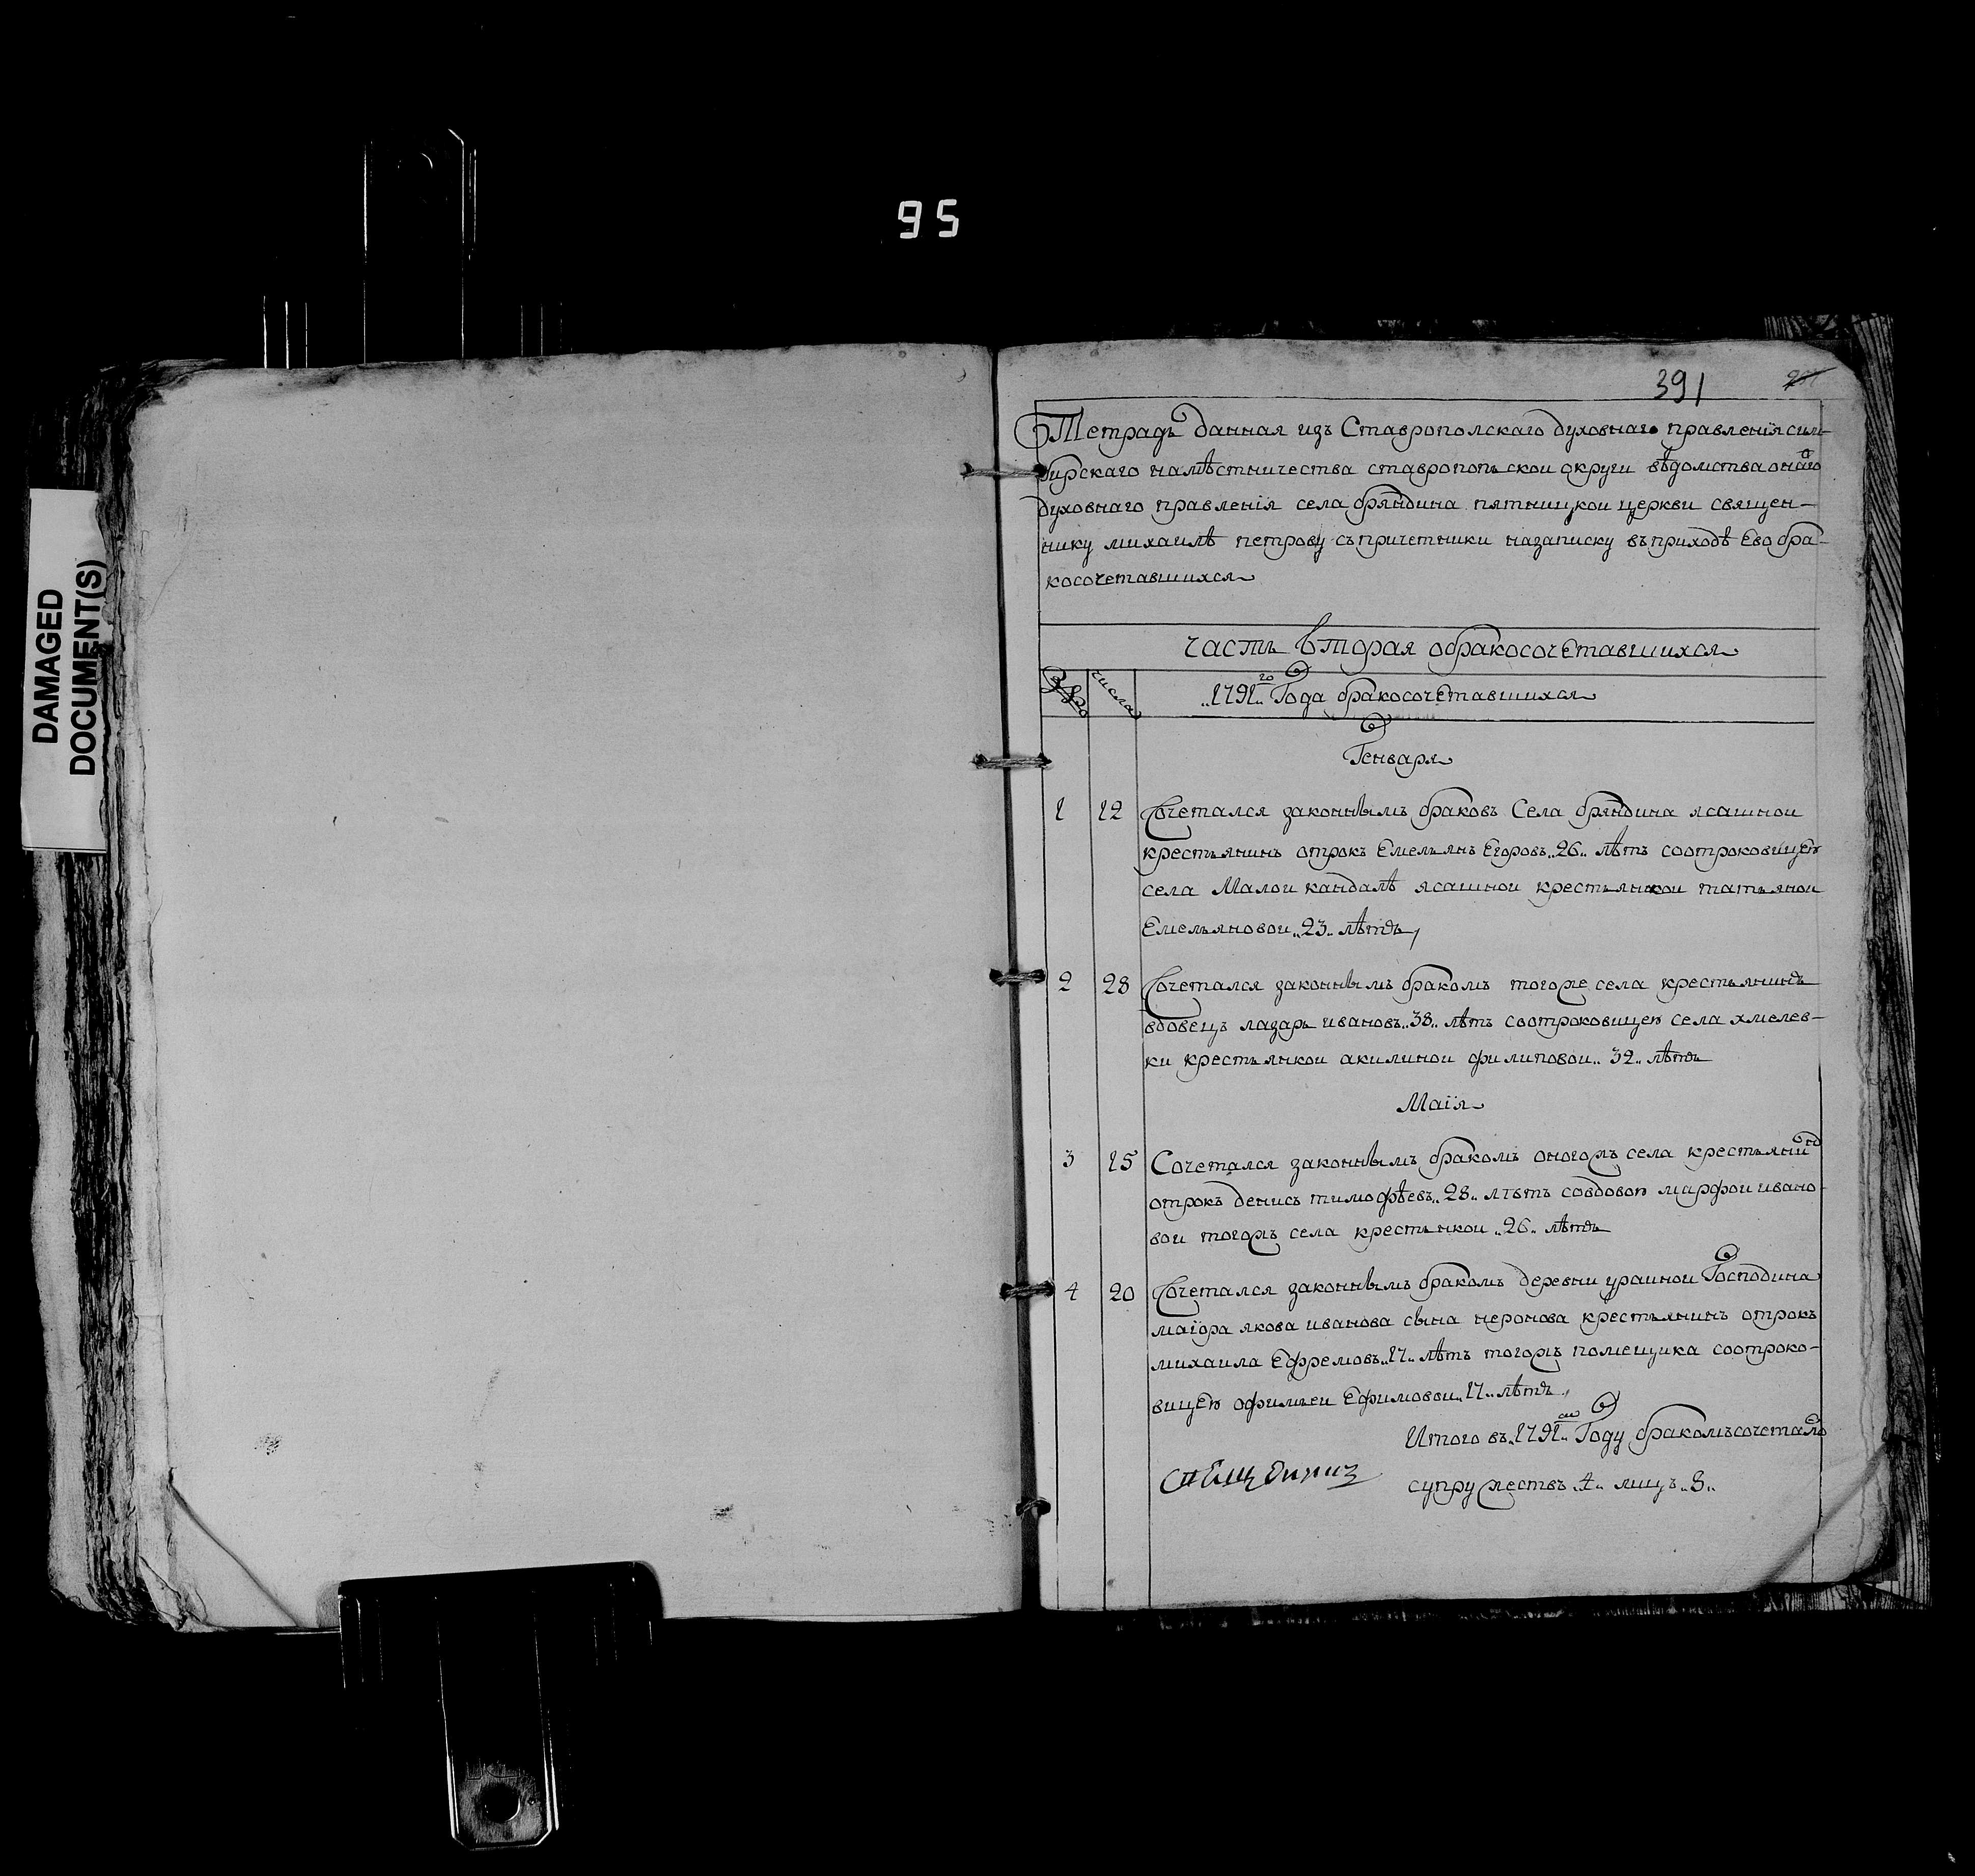 95
DAMAGED
DOCUMENT(S)
391
Тетрадь данная изъ Ставрополскаго духовнаго правленія сим-
бирскаго намѣстничества ставропольскои округи вѣдомства онаго
духовнаго правленія села бряндина пятницкои церкви священ-
нику михаилѣ петрову съпричетники назаписку въприходѣ Ево бра-
косочетавшихся
часть вторая обракосочетавшихся
числа
1791го Года бракосочетавшихся
Генваря
1 12 Сочетался законнымъ браковъ Села бряндина ясашнои
крестьянинъ отрокъ Емельянъ Егоровъ 26 лѣтъ соотроковицею
села Малои кандалѣ ясашнои крестьянкои татьянои
Емельяновои 23 лѣтъ
2 28 Сочетался законнымъ бракомъ тогоже села крестьянинъ
вдовецъ лазарь ивановъ 38 лѣтъ соотроковицею села хмелев-
ки крестьянкои акилинои филиповои 32 лѣтъ
Маія
3 15 Сочетался законнымъ бракомъ оногожъ села крестьянинъ
отрокъ денисъ тимофѣевъ 28 лѣтъ совдовою марфои ивано-
вои тогожъ села крестьнкои 26 лѣтъ
4 20 Сочетался законнымъ бракомъ деревни ураинои Господина
маіора якова иванова сына неронова крестьянинъ отрокъ
михаила Ефремовъ 17 лѣтъ тогожъ помещика соотроко-
вицею офимьеи Ефимовои 17 лѣтъ
Итого въ 1791 Году бракомъсочетано
супружествъ 4 лицъ 8